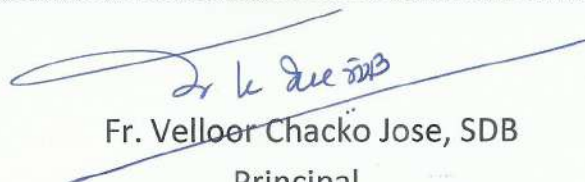 Fr. Velloor Chacko Jose, SDB
Principal